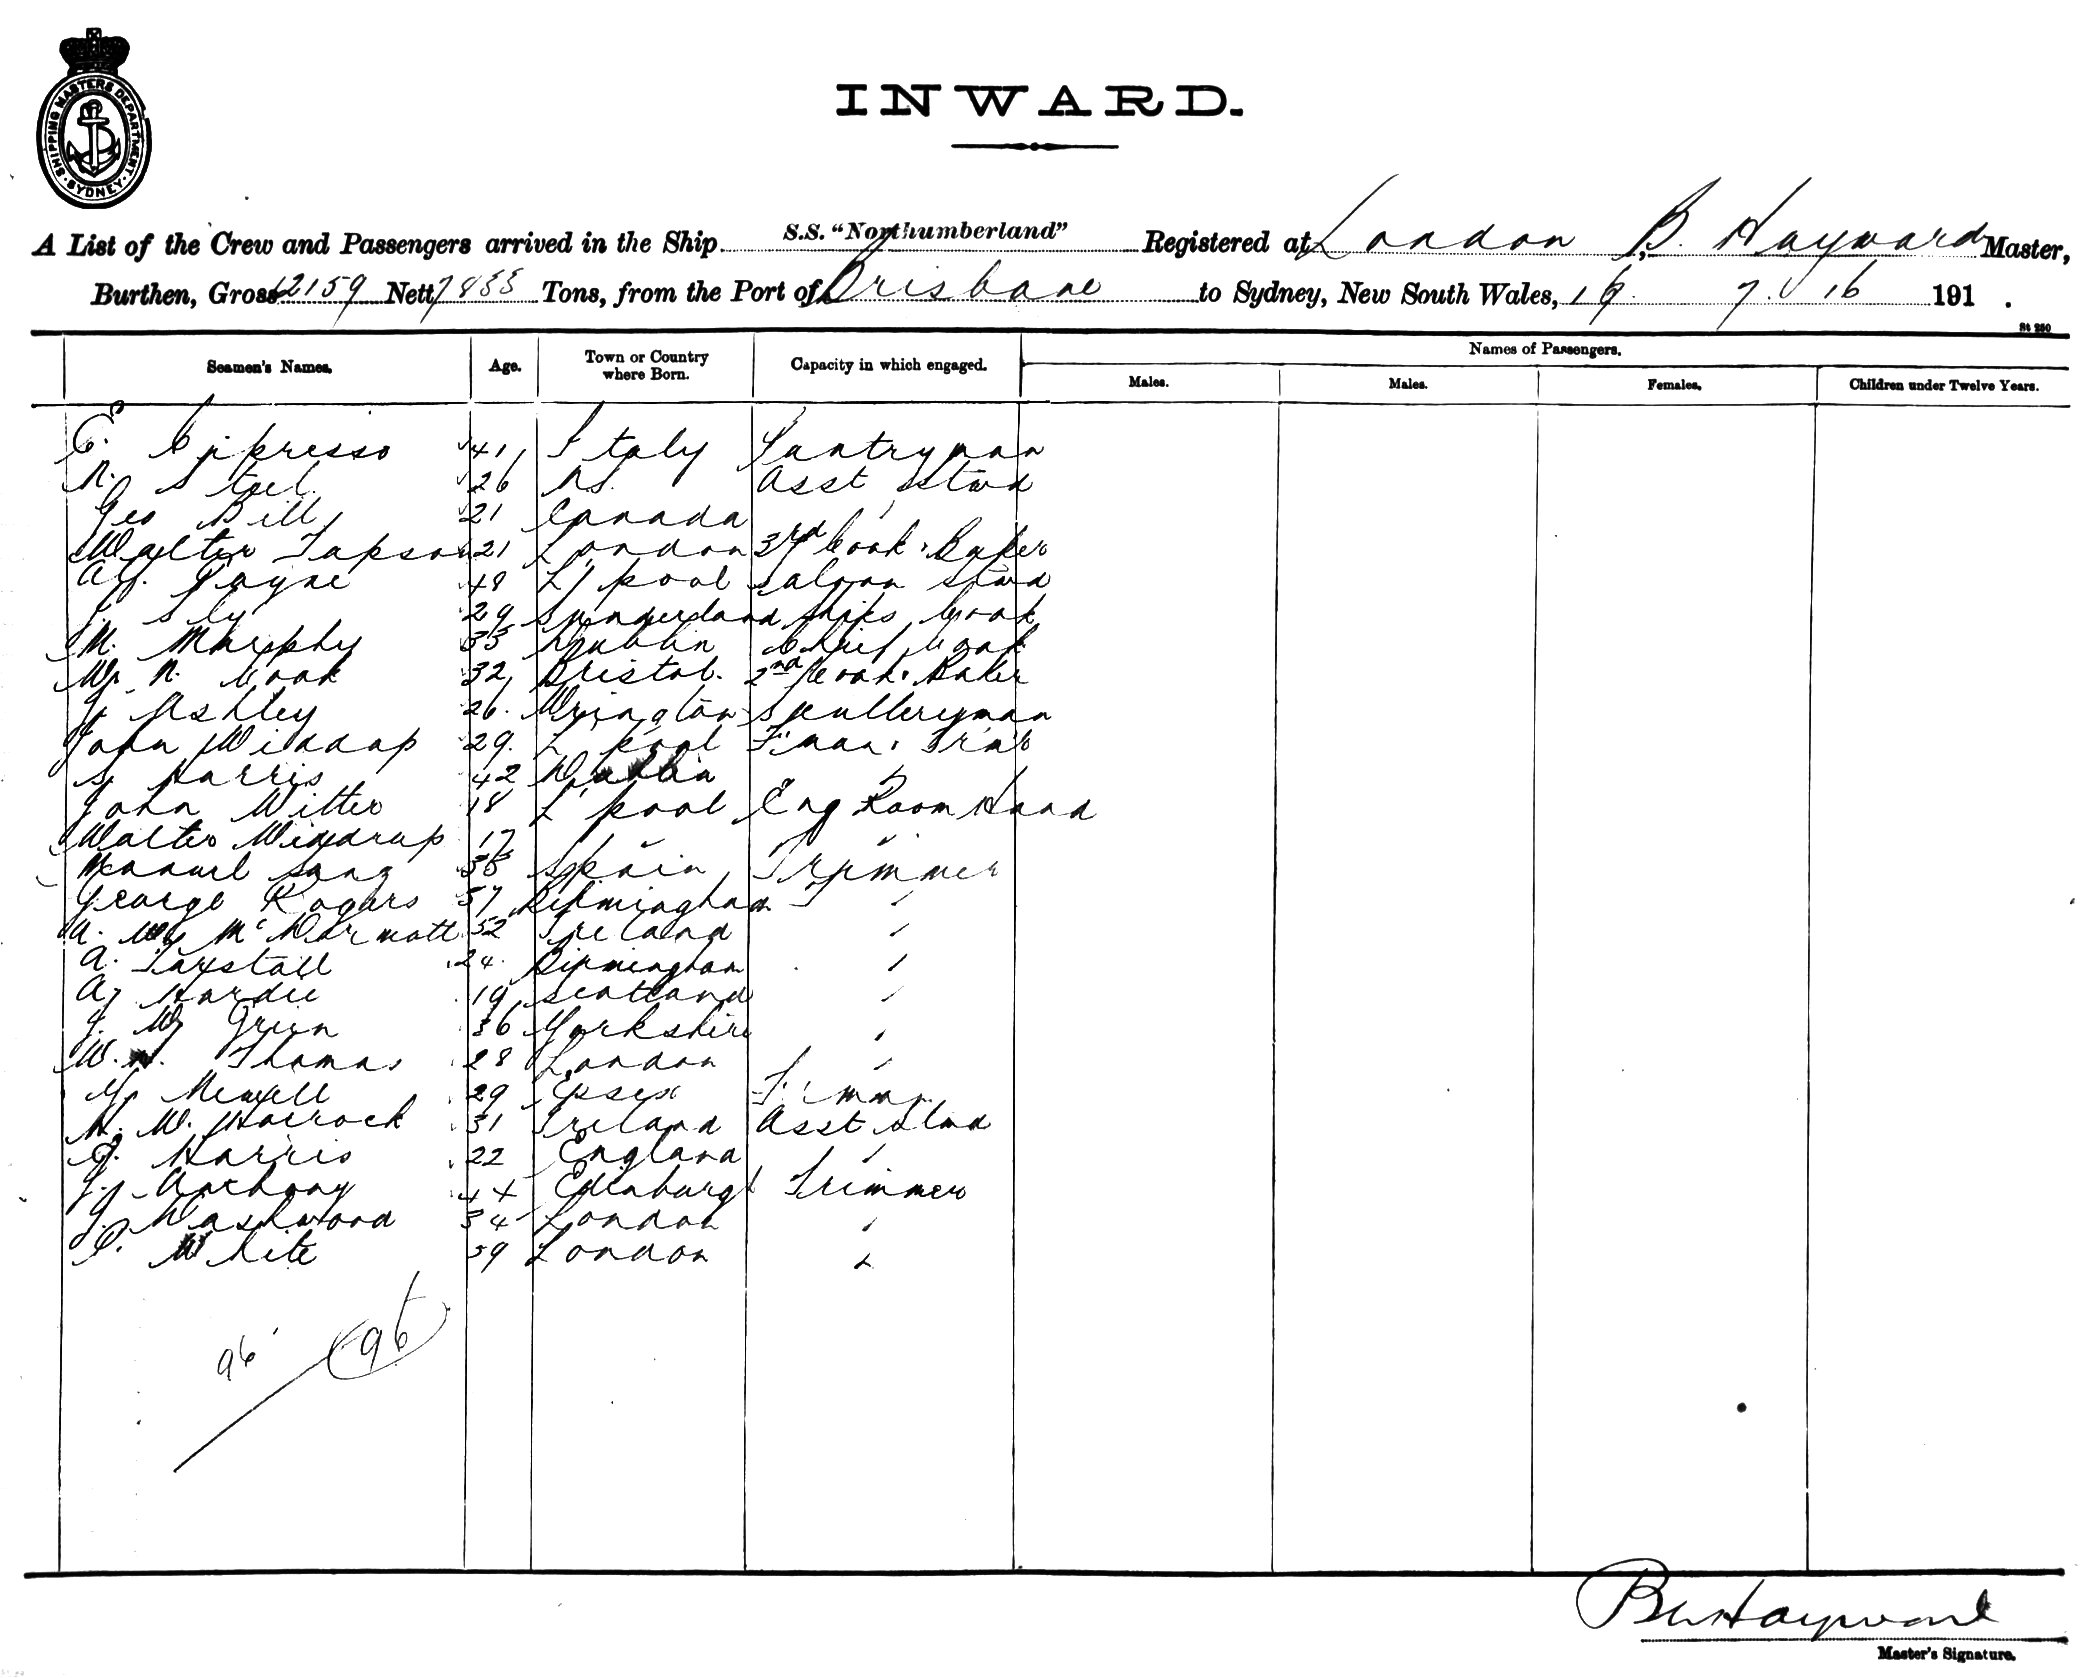 SHIPPING MASTERS DEPARTMENT · SYDNEY ·
INWARD.
A List of the Crew and Passengers arrived in the Ship S.S. "Northumberland" Registered at London, B. Hayward Master,
Burthen, Gross 12159 Nett 7833 Tons, from the Port of Brisbane to Sydney, New South Wales, 19. 7. 16 191 .
St 250
Seamen's Names. Age. Town or Country where Born. Capacity in which engaged. Names of Passengers.
Males. Males. Females. Children under Twelve Years.
Cipresso 41 Italy Pantryman
26 Asst Stwd
Geo Bill 21 Canada
Walter Tapson 21 London 3rd Cook & Baker
Payne 48 L'pool Saloon Stwd
J Sly 29 Sunderland Ships Cook
M. Murphy 33 Dublin Chief Cook
W. R. Cook 32 Bristol. 2nd Cook & Baker
Ashley 26. Sculleryman
John Widdup 29. L'pool
S Harris 42 Dublin
John Witter 18 L'pool Eng Room Hand
Walter 17
Manuel 35 Spain Trimmer
George Rogers 57 Birmingham
McDermott 52 Ireland
A. 24. Birmingham
A Hardie 19 Scotland
J. W Green 36 Yorkshire
W. Thomas 28 London
Newell 29 Essex
W. Horrock 31 Ireland Asst Stwd
Harris 22 England
J. Anthony 44 Edinburgh Trimmer
J. Washwood 34 London
White 39 London
96 96
B Hayward
Master's Signature.